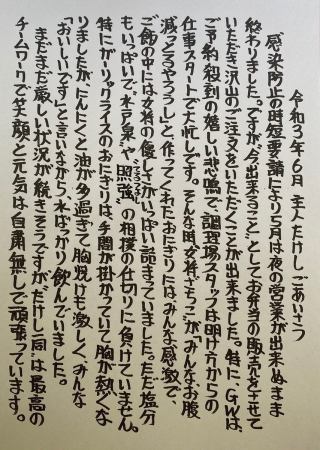 令和3年6月 主人たけし ごあいさつ
感染防止の時短要請により5月は夜の営業が出来ぬまま
終わりました。ですが、今出来ること、としてお弁当の販売をさせて
いただき沢山のご注文をいただくことが出来ました。特に、GWは、
ご予約殺到の嬉しい悲鳴で調理場スタッフは明け方からの
仕事スタートで大忙しです。そんな時、女将さちこが「みんな、お腹
減っとろやうらし」と作ってくれたおにぎりには、みんな感激で、
ご飯の中には女将の優しさがいっぱい詰まっていました。ただ塩分
もいっぱいで、"水戸泉"や"照強"の相撲の仕切りに負けていません。
てるつよし
特にガーリックライスのおにぎりは、手間が掛かっていて胸が熱くな
りましたが、にんにくと油が多過ぎて胸焼けも激しく、みんな
「おいしいです」と言いながら、水ばっかり飲んでいました。
まだまだ厳しい状況が続きそうですが"たけし一同"は最高の
チームワークで笑顔と元気は自粛無しで頑張っています。